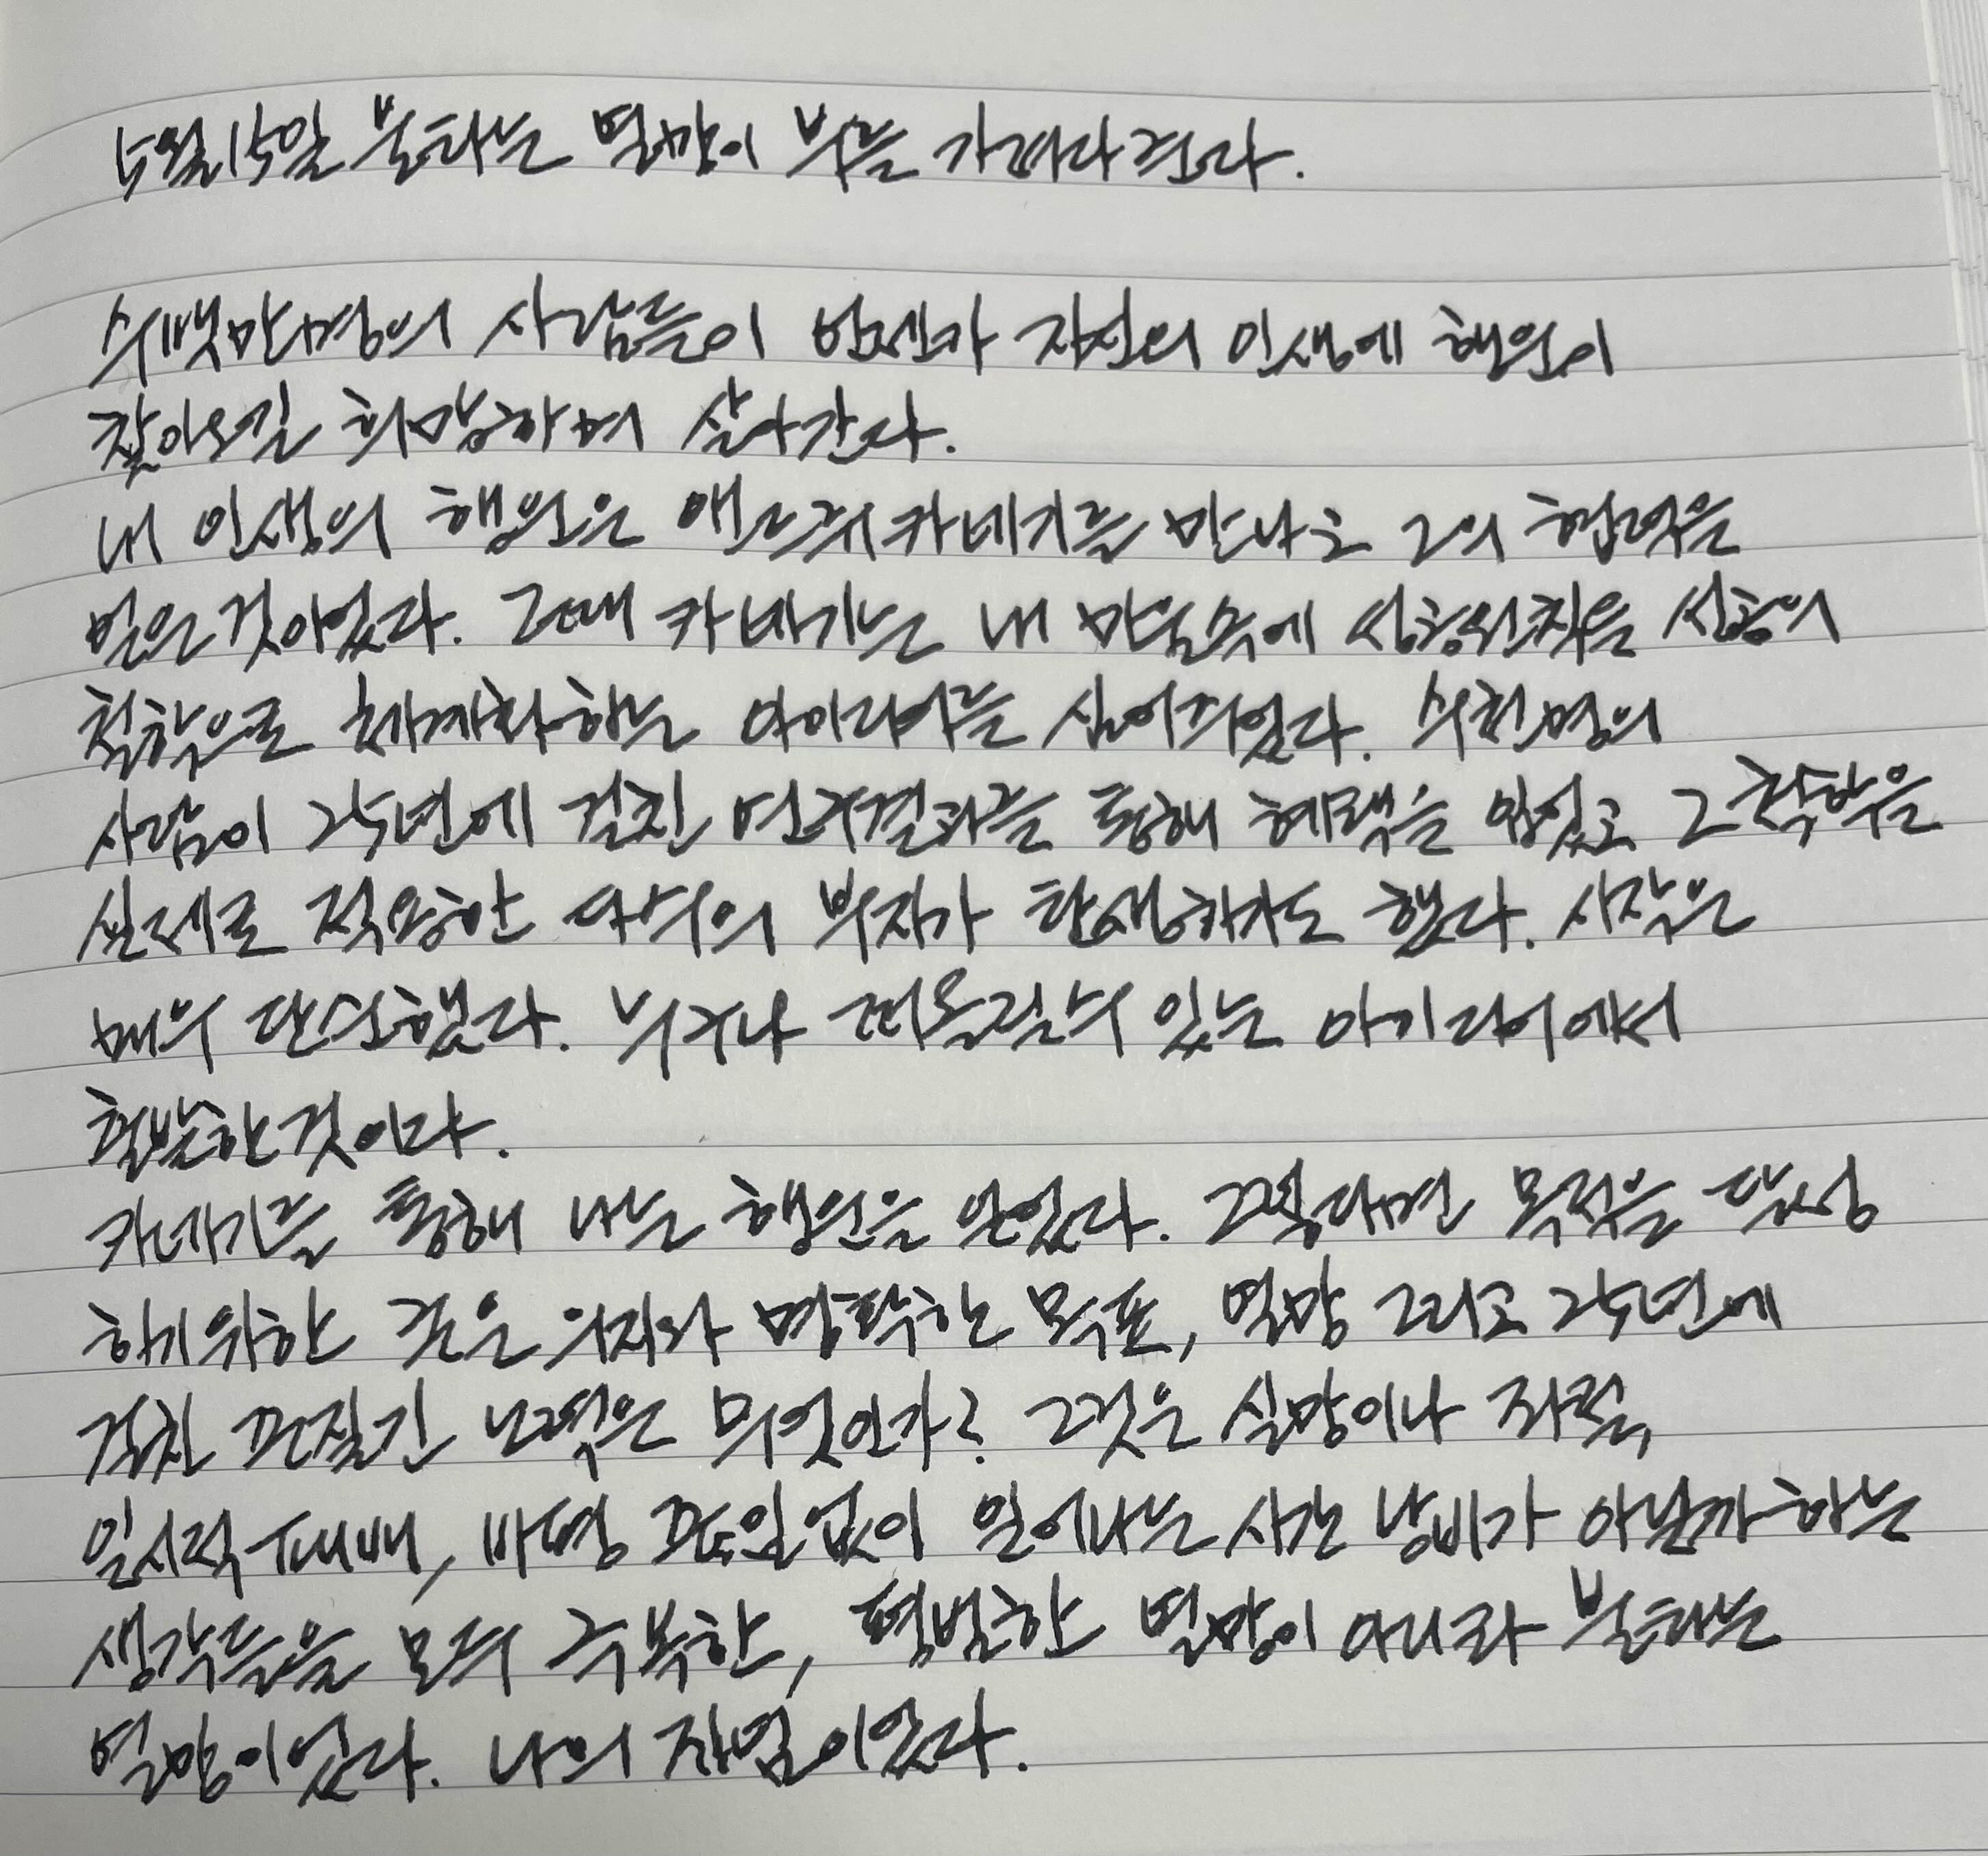 5월15일 불타는 열망이 부를 가져다준다.
수백만명의 사람들이 언젠가 자신의 인생에 행운이
찾아오길 희망하며 살아간다.
내 인생의 행운은 앤드류카네기를 만나고 그의 협력을
얻은것이었다. 그때 카네기는 내 마음속에 성공원칙을 성공의
철학으로 체계화하는 아이디어를 심어주었다. 수천명의
사람이 25년에 걸친 연구결과를 통해 혜택을 입었고 그철학을
실제로 적용한 다수의 부자가 탄생하기도 했다. 시작은
매우 단순했다. 누구나 떠올릴수 있는 아이디어에서
출발한것이다.
카네기를 통해 나는 행운을 얻었다. 그렇다면 목적을 달성
하기위한 굳은 의지와 명확한 목표, 열망 그리고 25년에
걸친 끈질긴 노력은 무엇인가? 그것은 실망이나 좌절,
일시적 패배, 비평 끊임없이 일어나는 시간 낭비가 아닐까하는
생각들을 모두 극복한, 평범한 열망이 아니라 불타는
열망이었다. 나의 집념이었다.